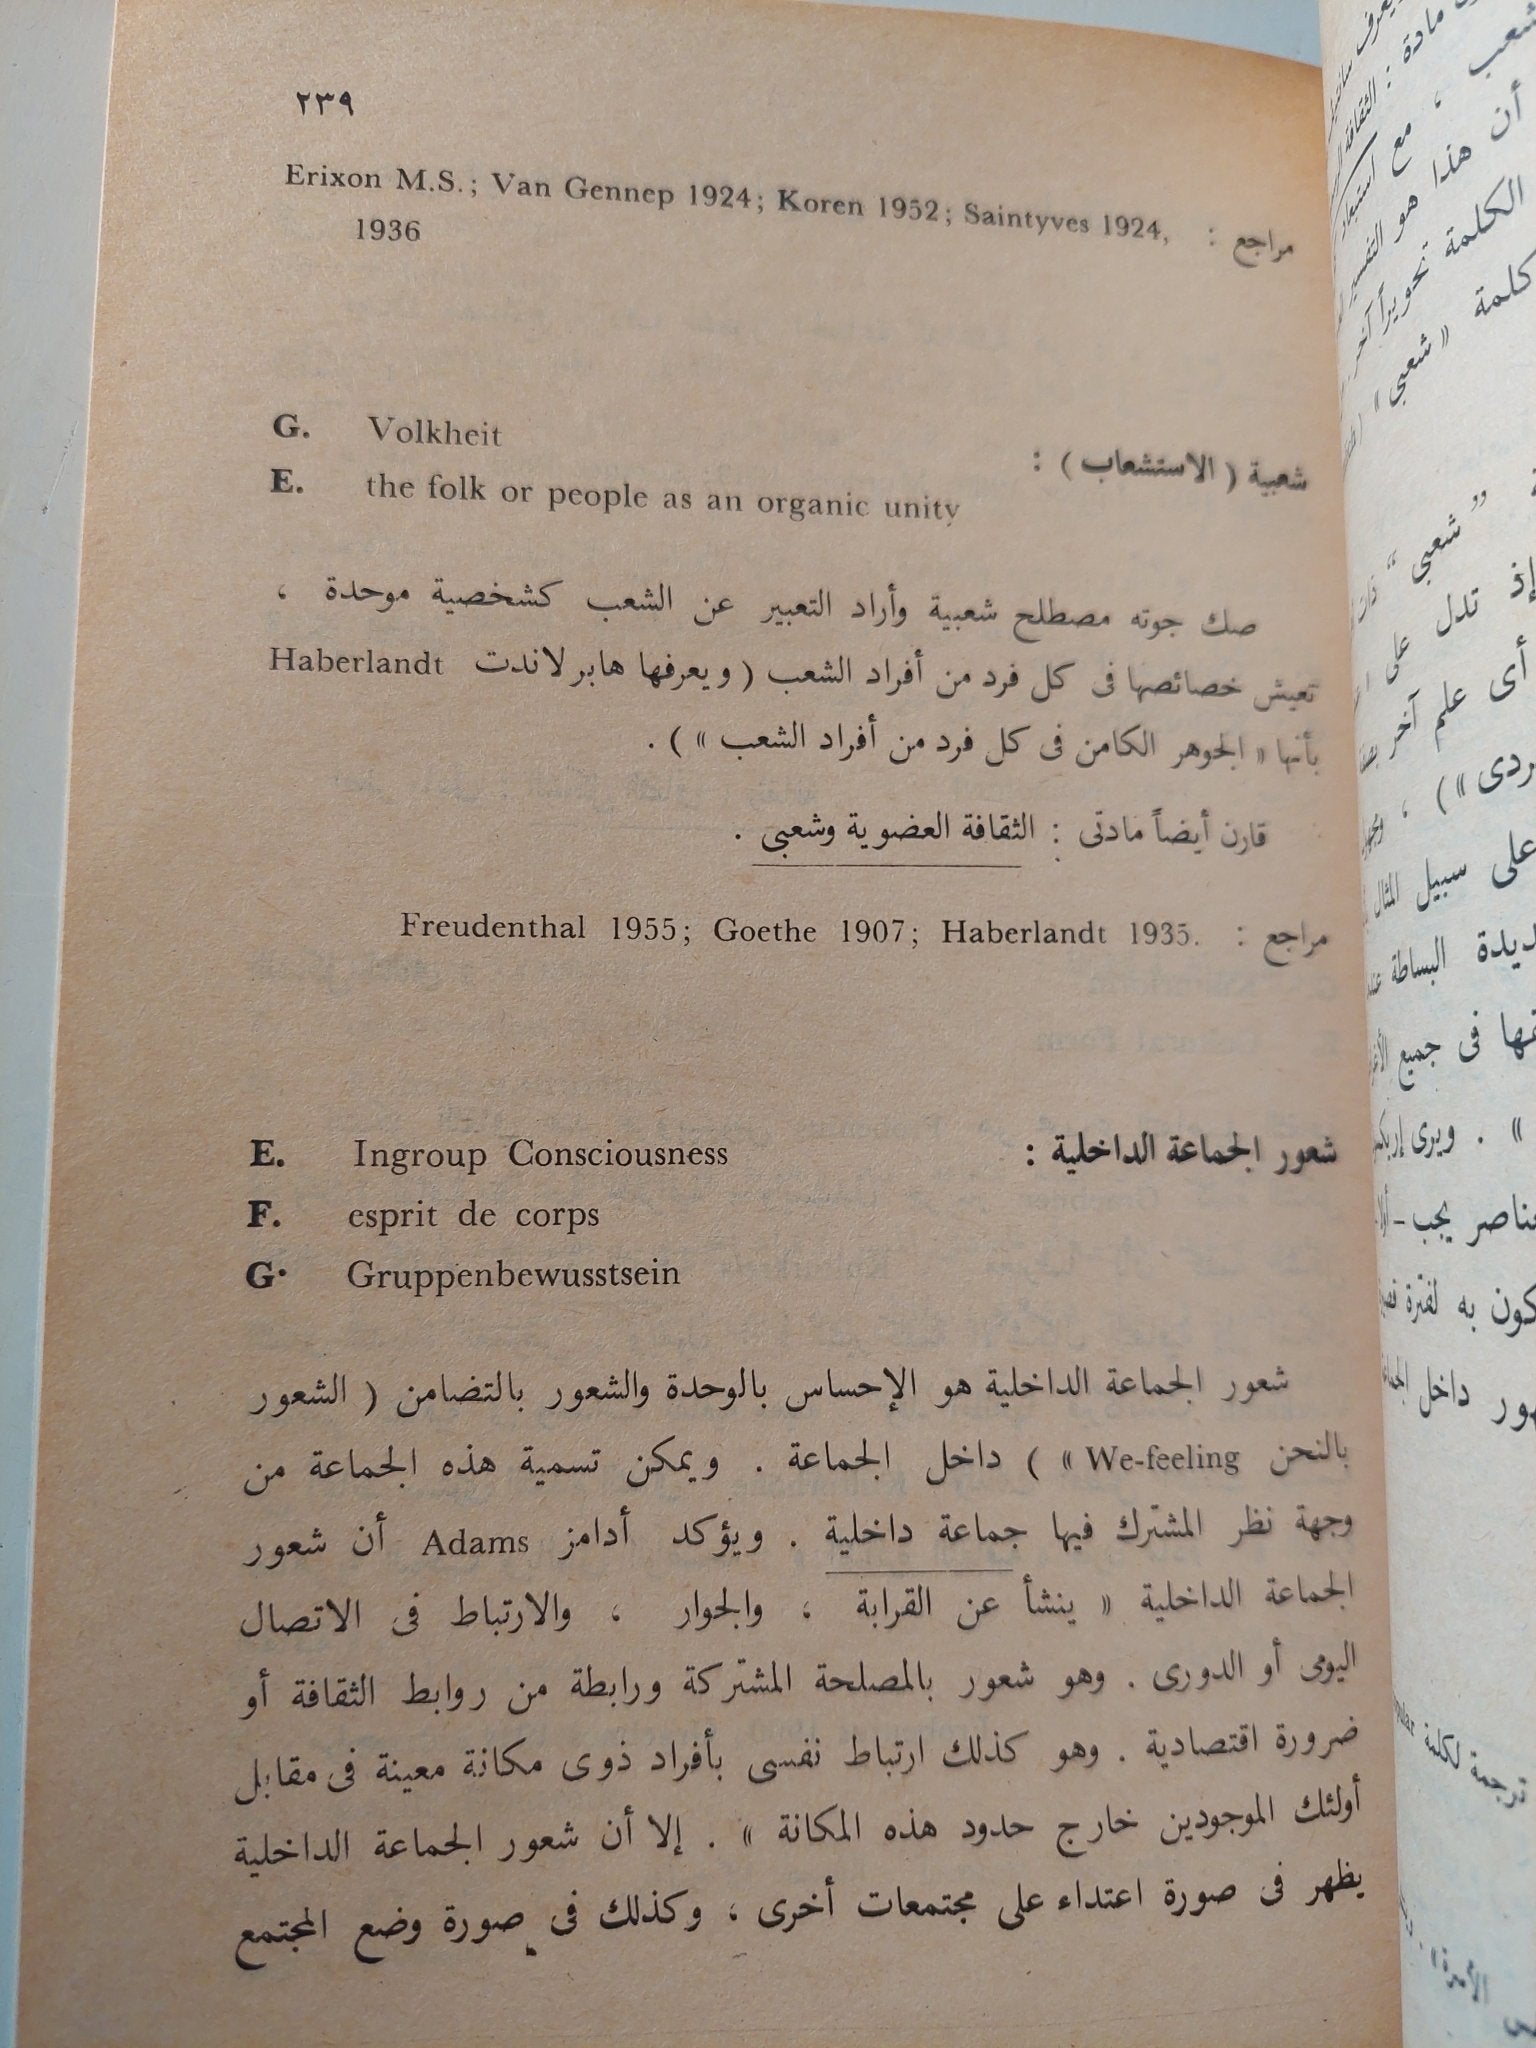 ٢٣٩
مراجع : Erixon M.S.; Van Gennep 1924; Koren 1952; Saintyves 1924,
1936
شعبية ( الاستشعاب ) :
G. Volkheit
E. the folk or people as an organic unity
صك جوته مصطلح شعبية وأراد التعبير عن الشعب كشخصية موحدة ،
تعيش خصائصها فى كل فرد من أفراد الشعب ( ويعرفها هابرلاندت Haberlandt
بأنها « الجوهر الكامن فى كل فرد من أفراد الشعب » ) .
قارن أيضاً مادتى : الثقافة العضوية وشعبى .
مراجع : Freudenthal 1955; Goethe 1907; Haberlandt 1935.
شعور الجماعة الداخلية :
E. Ingroup Consciousness
F. esprit de corps
G. Gruppenbewusstsein
شعور الجماعة الداخلية هو الإحساس بالوحدة والشعور بالتضامن ( الشعور
بالنحن We-feeling » ) داخل الجماعة . ويمكن تسمية هذه الجماعة من
وجهة نظر المشترك فيها جماعة داخلية . ويؤكد أدامز Adams أن شعور
الجماعة الداخلية « ينشأ عن القرابة ، والجوار ، والارتباط فى الاتصال
اليومى أو الدورى . وهو شعور بالمصلحة المشتركة ورابطة من روابط الثقافة أو
ضرورة اقتصادية . وهو كذلك ارتباط نفسى بأفراد ذوى مكانة معينة فى مقابل
أولئك الموجودين خارج حدود هذه المكانة » . إلا أن شعور الجماعة الداخلية
يظهر فى صورة اعتداء على مجتمعات أخرى ، وكذلك فى صورة وضع المجتمع
مادة : الثقافة
شعب ، مع استبعاد
أن هذا هو التفسير
الكلمة تحويراً آخر
كلمة « شعبى »
” شعبى “
إذ تدل على
أى علم آخر
على سبيل المثال
البساطة
فى جميع
» . ويرى
يجب - أولا
به لفترة
داخل
ترجمة لكلمة